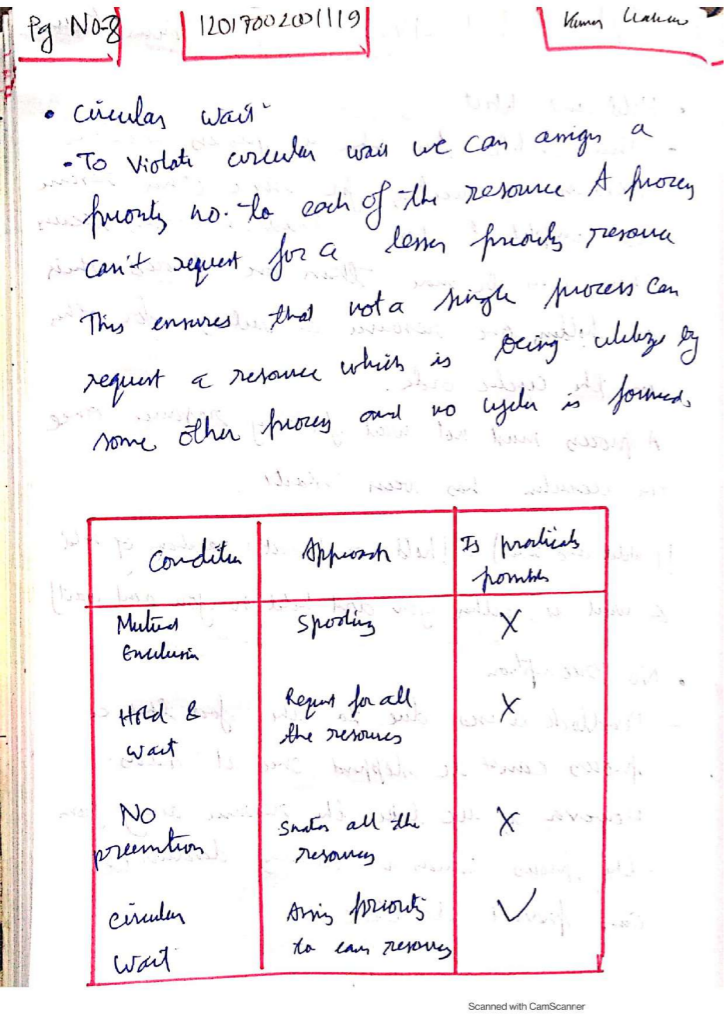 Pg No-8
12017002001119
• Circular wait -
- To violate circular wait we can assign a
priority no. to each of the resource A process
can't request for a lesser priority resource
This ensures that not a single process can
request a resource which is being utilize by
some other process and no cycle is formed.
Condition
Approach
Is practicaly
possible
Mutual
Exclusion
Spooling
X
Hold &
wait
Request for all
the resources
X
NO
preemtion
Snatch all the
resources
X
circular
Wait
Assign priority
to each resources
✓
Scanned with CamScanner